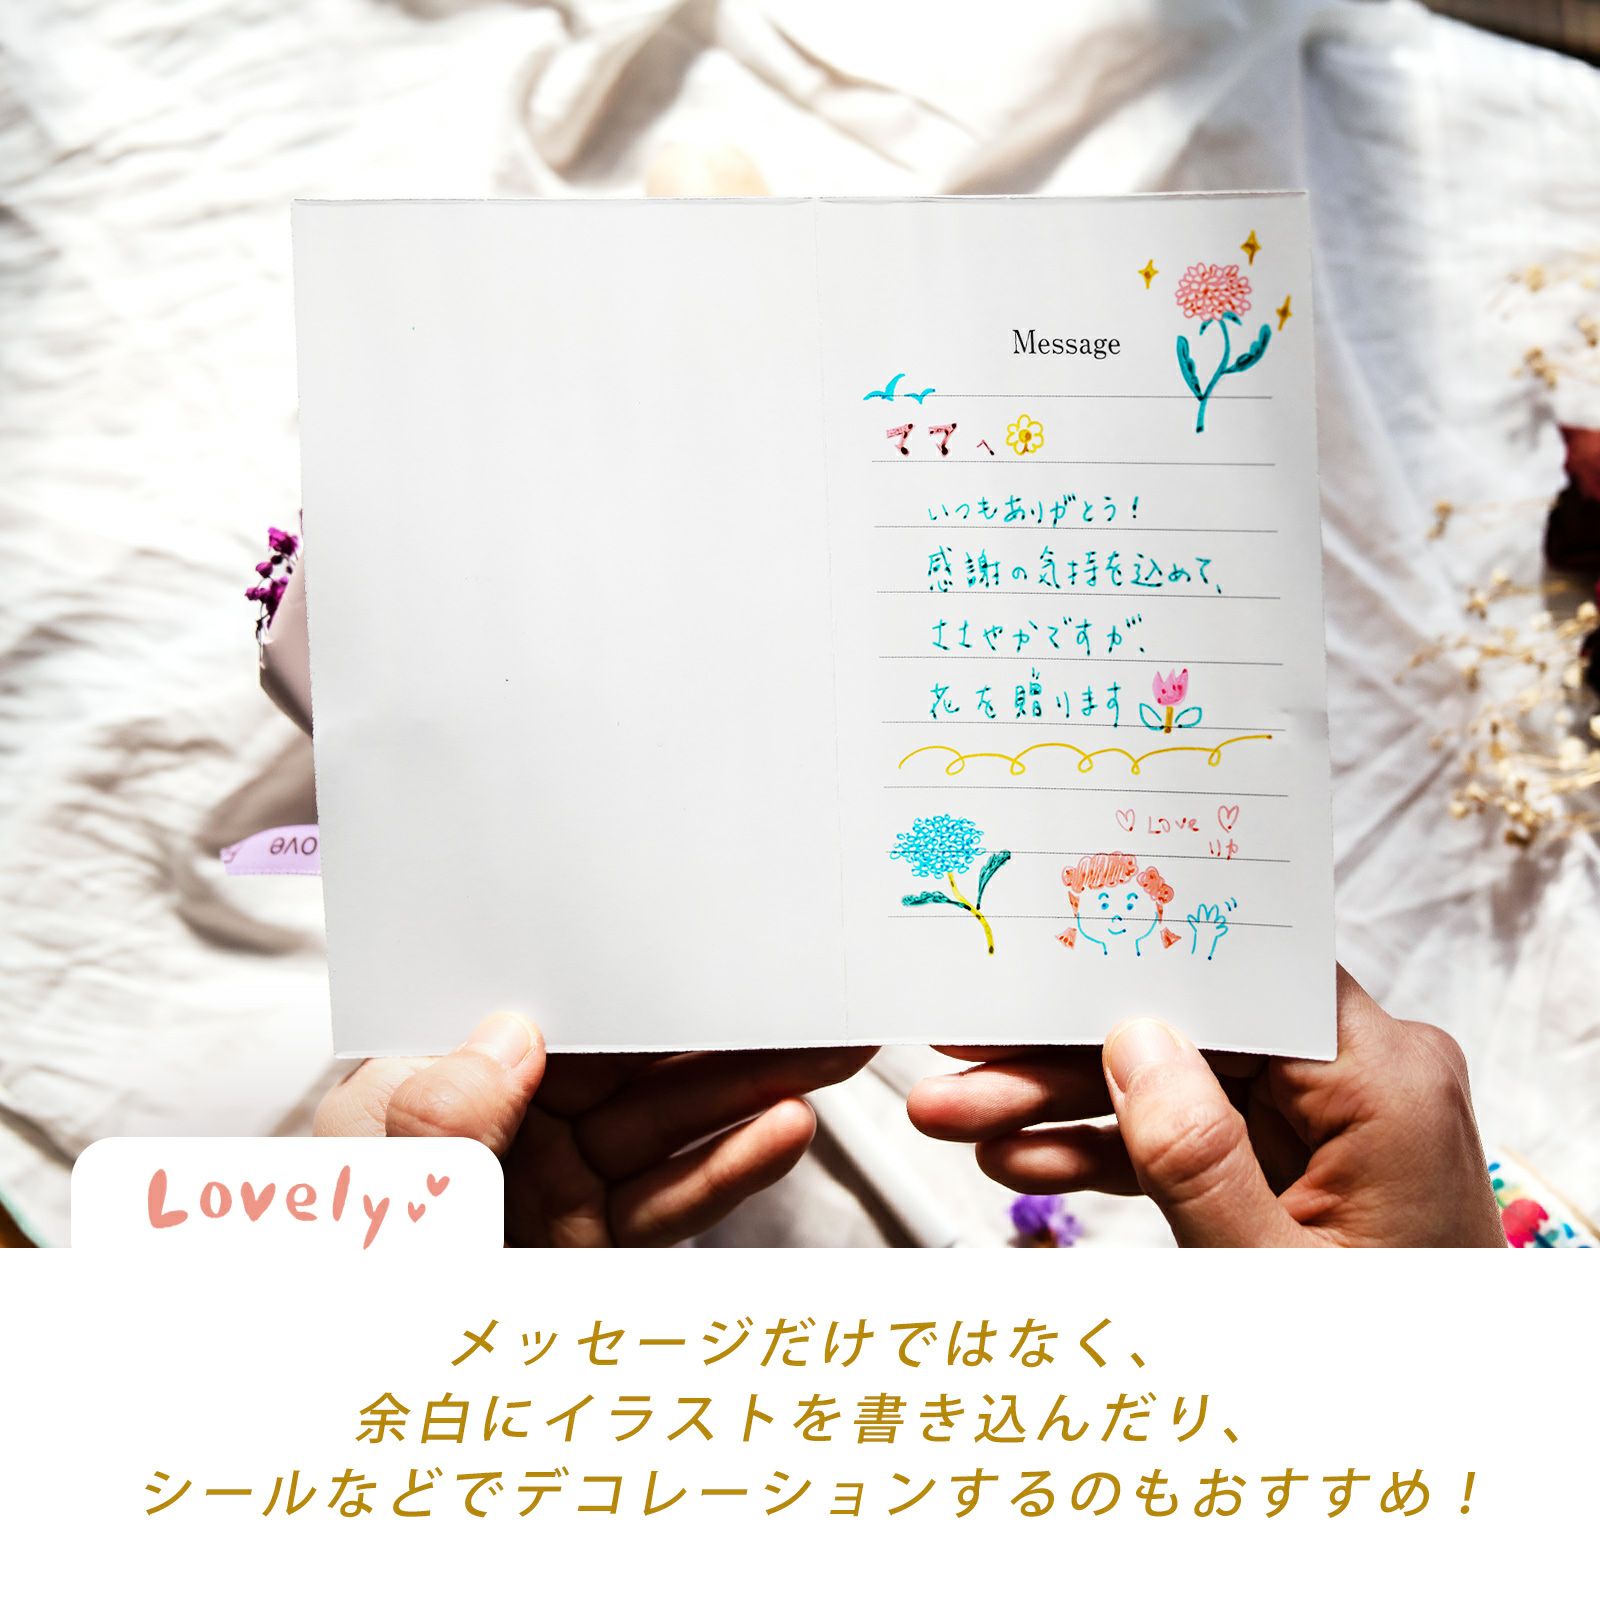 Message
ママへ
いつもありがとう!
感謝の気持を込めて、
ささやかですが、
花を贈ります
Love
りか
ove
Lovely
メッセージだけではなく、
余白にイラストを書き込んだり、
シールなどでデコレーションするのもおすすめ！